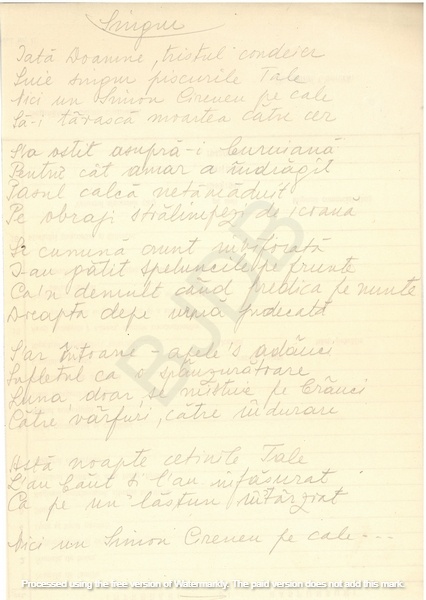 Singur
Iată Doamne, tristul condeier
Suie singur piscurile Tale
Nici un Simon Cireneu pe cale
Să-i târască moartea către cer
S'a ostit asupră-i buruiană
Pentru cât amar a îndrăgit
Pasul calcă netămăduit
Pe obraji străilimpezi de icoană
Se cunună crunt înviforată
I-au gătit speluncile pe frunte
Ca'n demult când predica pe munte
Dreapta
S'ar întoarce - apele's adânci
Sufletul ca o spânzurătoare
Luna doar, se mistuie pe brânci
Către vârfuri, către îndurare
Astă noapte cetinile Tale
L'au băut și l'au înfășurat
Ca pe un lăstun întârziat
Nici un Simon Cireneu pe cale...
BJDB
Processed using the free version of Watermarkly. The paid version does not add this mark.